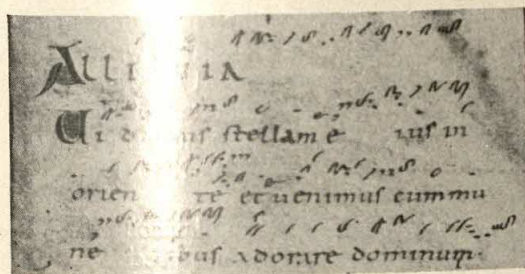 ALLELUIA
Uidimus stellam e ius in
orien te et uenimus cum mu
ne ribus adorare dominum.